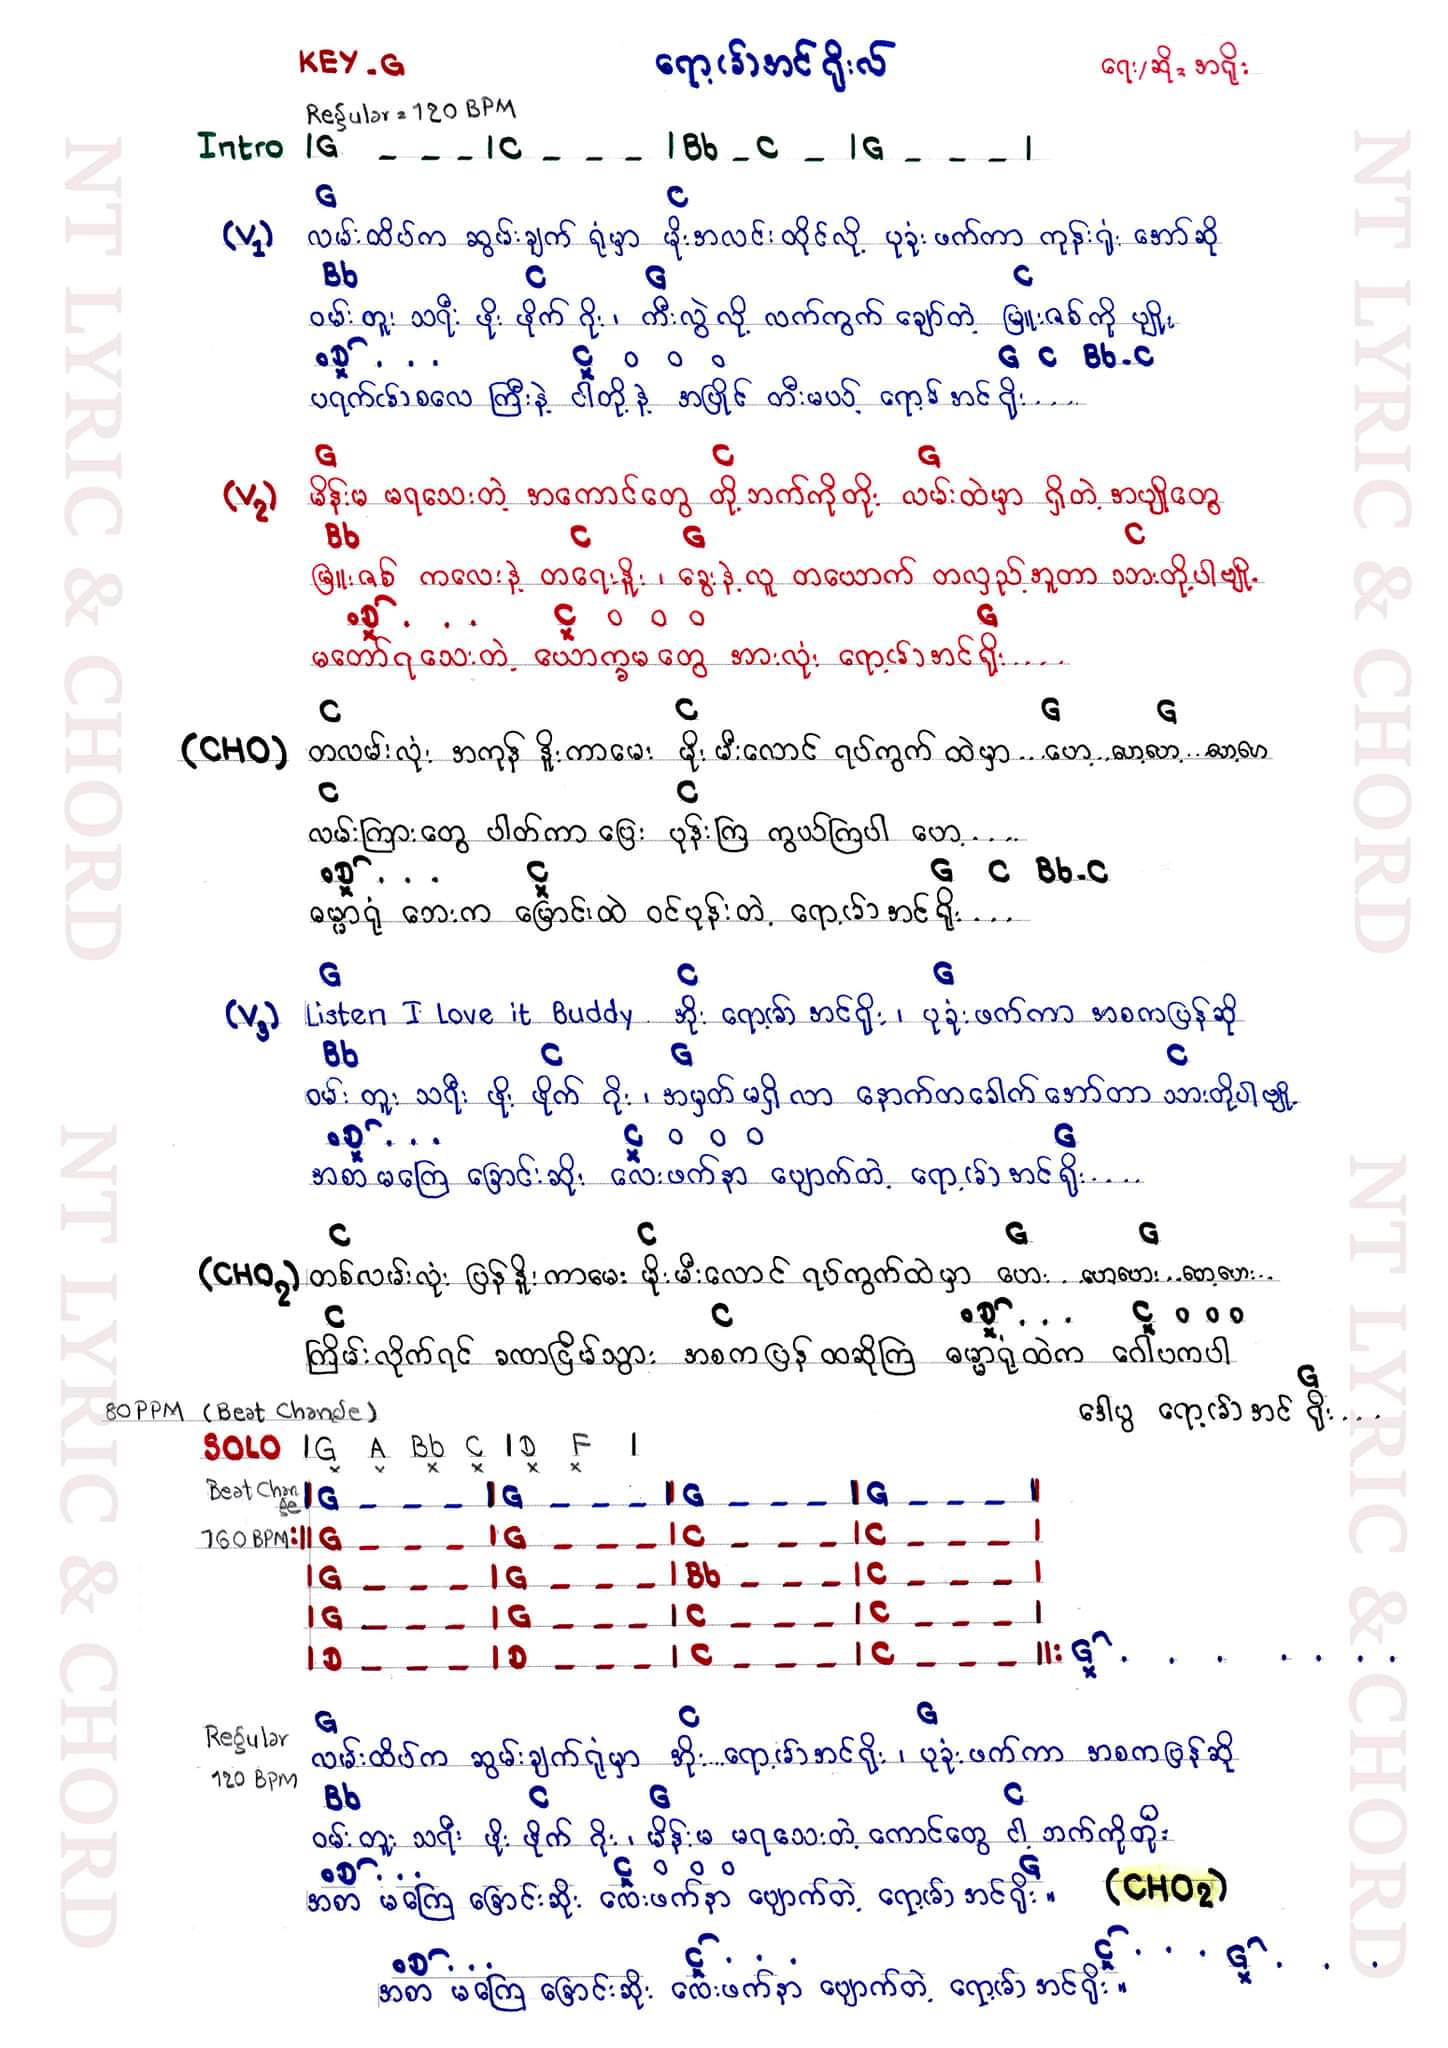 KEY - G
ရော့(ခ်)အင်ရိုးလ်
ရေး/ဆို = အရိုး
Regular = 120 BPM
Intro |G _ _ _ |C _ _ _ |Bb _ C _ |G _ _ _ |
G C
(V1) လမ်းထိပ်က ဆွမ်းချက် ရုံမှာ မိုးအလင်းထိုင်လို့ ပုခုံးဖက်ကာ ကုန်းရုံး အော်ဆို
Bb C G C
ဝမ်း တူး သရီး ဖိုး ဖိုက် ဂိုး ၊ ကီးလွဲလို့ လက်ကွက် ချော်တဲ့ မြူးဇစ်ကို မျိုး
D . . . C o o o G C Bb-C
ပရက်(ခ်)စလေ ကြီးနဲ့ ငါတို့နဲ့ အပြိုင် တီးမယ့် ရော့ခ် အင်ရိုး.....
G C G
(V2) မိန်းမ မရသေးတဲ့ အကောင်တွေ တို့ဘက်ကိုတိုး လမ်းထဲမှာ ရှိတဲ့ အပျိုတွေ
Bb C G C
မြူးဇစ် ကလေးနဲ့ တရေးနိူး ၊ ခွေးနဲ့လူ တယောက် တလှည့်အူတာ သားတို့ပါဗျို့
D . . . C o o o G
မတော်ရသေးတဲ့ ယောက္ခမတွေ အားလုံး ရော့(ခ်)အင်ရိုး.....
C C G G
(CHO) တလမ်းလုံး အကုန် နိူးကာမေး မိုးမီးလောင် ရပ်ကွက် ထဲမှာ...ဟေ့...ဟာ့ဟာ့...ဟာ့ဟ
C C
လမ်းကြားတွေ ပါတ်ကာ ပြေး ပုန်းကြ ကွယ်ကြပါ ဟေ့.....
D . . . C G C Bb-C
ဓမ္မာရုံ ဘေးက မြောင်းထဲ ဝင်ပုန်းတဲ့ ရော့(ခ်)အင်ရိုး....
G C G
(V3) Listen I Love it Buddy အိုး ရော့(ခ်)အင်ရိုး ၊ ပုခုံးဖက်ကာ အစကပြန်ဆို
Bb C G C
ဝမ်း တူး သရီး ဖိုး ဖိုက် ဂိုး ၊ အမှတ်မရှိလာ နောက်တခေါက် အော်တာ သားတို့ပါဗျို့
D . . . C o o o G
အစာ မကြေ ချောင်းဆိုး လေးဖက်နာ ပျောက်တဲ့ ရော့(ခ်)အင်ရိုး.....
C C G G
(CHO2) တစ်လမ်းလုံး ပြန်နိူးကာမေး မိုးမီးလောင် ရပ်ကွက်ထဲမှာ ဟေး...ဟေ့ဟေး...ဟေ့ဟေး...
C C D . . . C o o o
ကြိမ်းလိုက်ရင် ခဏငြိမ်သွား အစကပြန် ထဆိုကြ ဓမ္မာရုံထဲက ဂေါပကပါ
G
80 PPM (Beat Change)
ဒေါပွ ရော့(ခ်)အင် ရိုး.....
SOLO |G A Bb C |D F |
Beat Change |G _ _ _ |G _ _ _ |G _ _ _ |G _ _ _ |
160 BPM :||G _ _ _ |G _ _ _ |C _ _ _ |C _ _ _ |
|G _ _ _ |G _ _ _ |Bb _ _ _ |C _ _ _ |
|G _ _ _ |G _ _ _ |C _ _ _ |C _ _ _ |
|D _ _ _ |D _ _ _ |C _ _ _ |C _ _ _ ||: G . . . . . . .
G C G
Regular လမ်းထိပ်က ဆွမ်းချက်ရုံမှာ အိုး...ရော့(ခ်)အင်ရိုး ၊ ပုခုံးဖက်ကာ အစကပြန်ဆို
120 BPM
Bb C G C
ဝမ်း တူး သရီး ဖိုး ဖိုက် ဂိုး ၊ မိန်းမ မရသေးတဲ့ ကောင်တွေ ငါ့ ဘက်ကိုတိုး
D . . . C o o o G
အစာ မကြေ ချောင်းဆိုး လေးဖက်နာ ပျောက်တဲ့ ရော့(ခ်)အင်ရိုး ။ (CHO2)
D . . . C . . . C . . . G . . .
အစာ မကြေ ချောင်းဆိုး လေးဖက်နာ ပျောက်တဲ့ ရော့(ခ်)အင်ရိုး ။
NT LYRIC & CHORD
NT LYRIC & CHORD
NT LYRIC & CHORD
NT LYRIC & CHORD